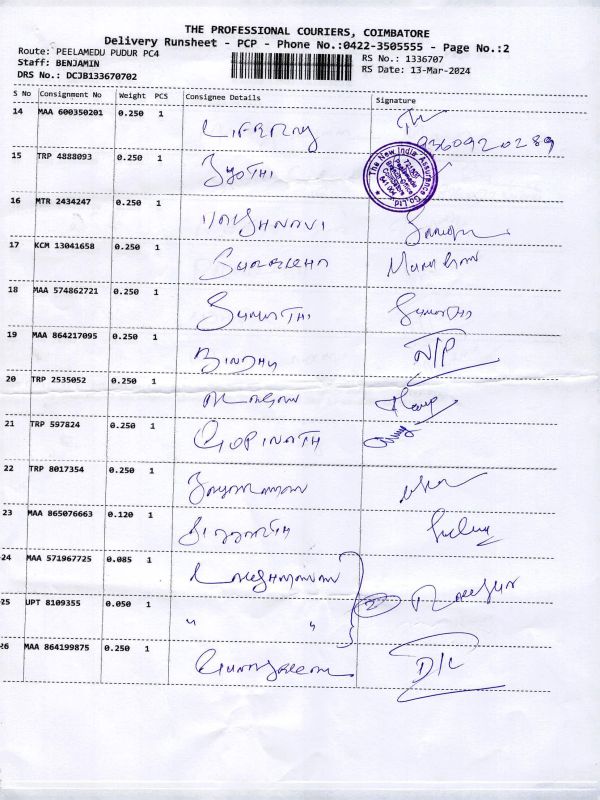 THE PROFESSIONAL COURIERS, COIMBATORE
Delivery Runsheet - PCP - Phone No.:0422-3505555 - Page No.:2
Route: PEELAMEDU PUDUR PC4
RS No.: 1336707
Staff: BENJAMIN
RS Date: 13-Mar-2024
DRS No.: DCJB133670702
S No Consignment No Weight PCS Consignee Details Signature
14 MAA 600350201 0.250 1
9360920289
15 TRP 4888093 0.250 1 JYOTHI
The New India Assurance Co. Ltd.
16 MTR 2434247 0.250 1 VAISHNAVI
17 KCM 13041658 0.250 1 SURREKHA
18 MAA 574862721 0.250 1 SUMATHI Sumathi
19 MAA 864217095 0.250 1 BINDHU N/P
20 TRP 2535052 0.250 1
21 TRP 597824 0.250 1 GOPINATH
22 TRP 8017354 0.250 1
23 MAA 865076663 0.120 1
24 MAA 571967725 0.085 1 LAKSHMANAN
25 UPT 8109355 0.050 1 " " 2
26 MAA 864199875 0.250 1 D/L